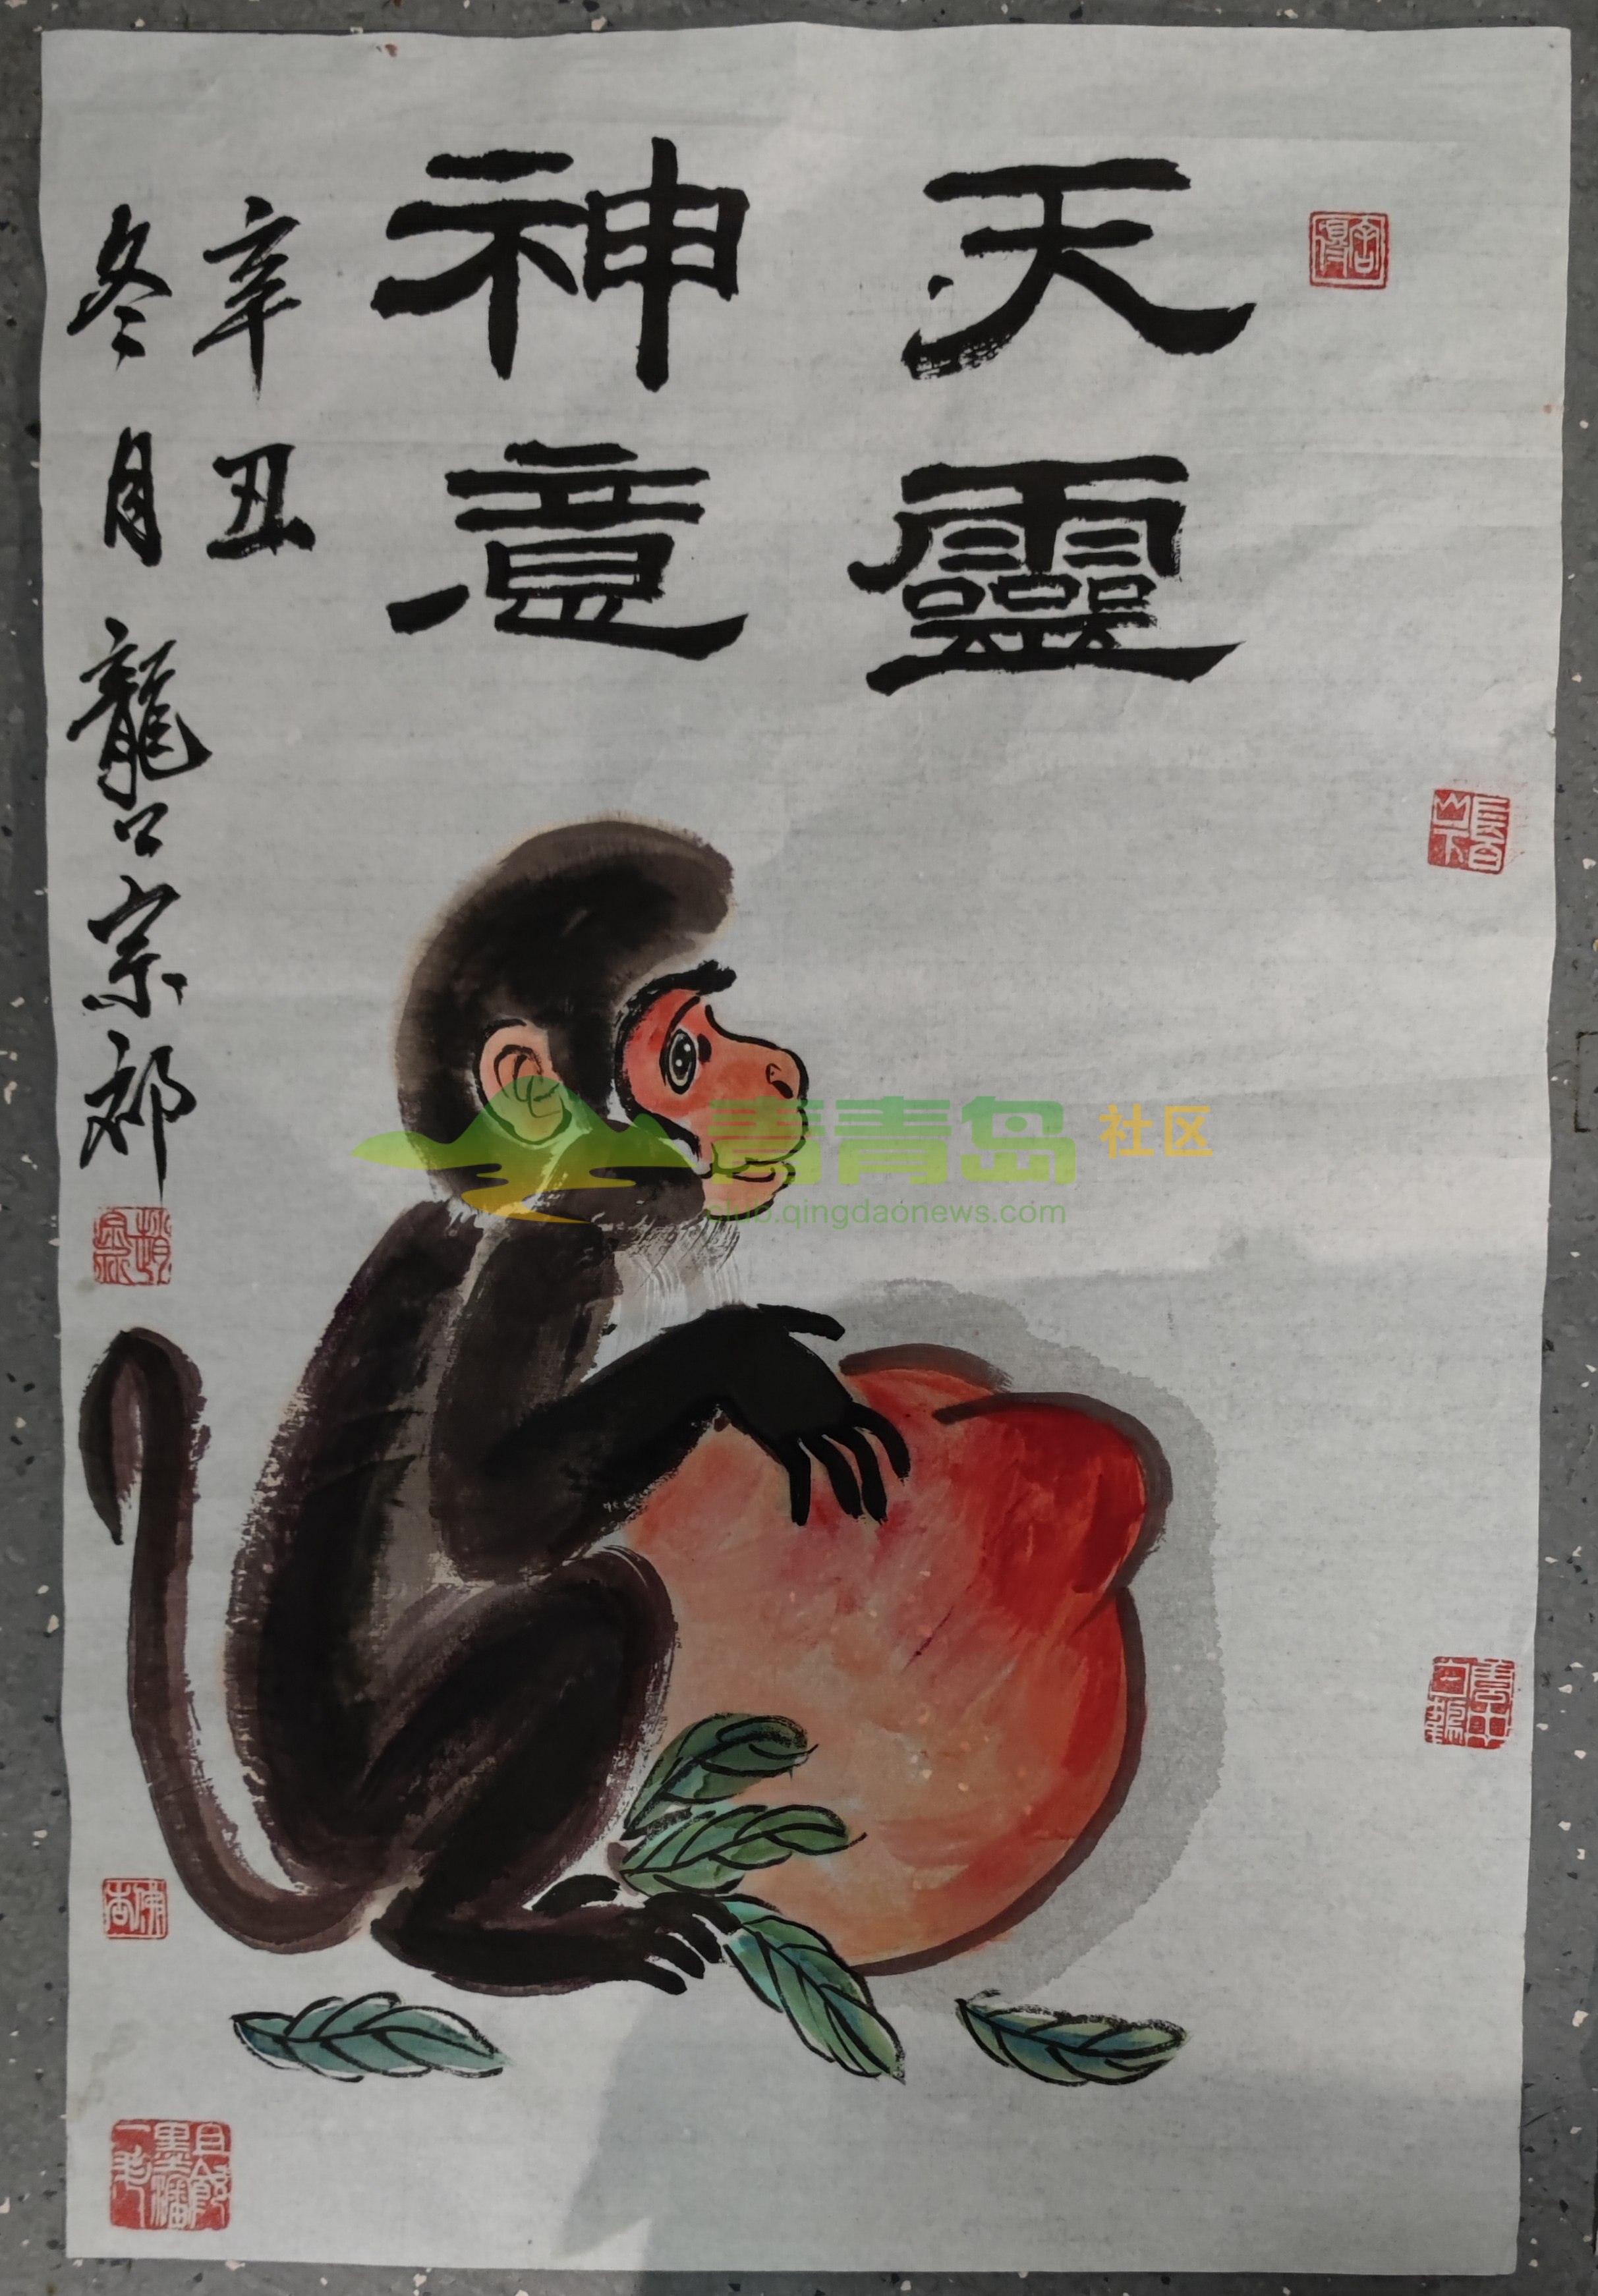 天靈
神意
辛丑
冬月龍口宗郊
青青岛 社区
club.qingdaonews.com